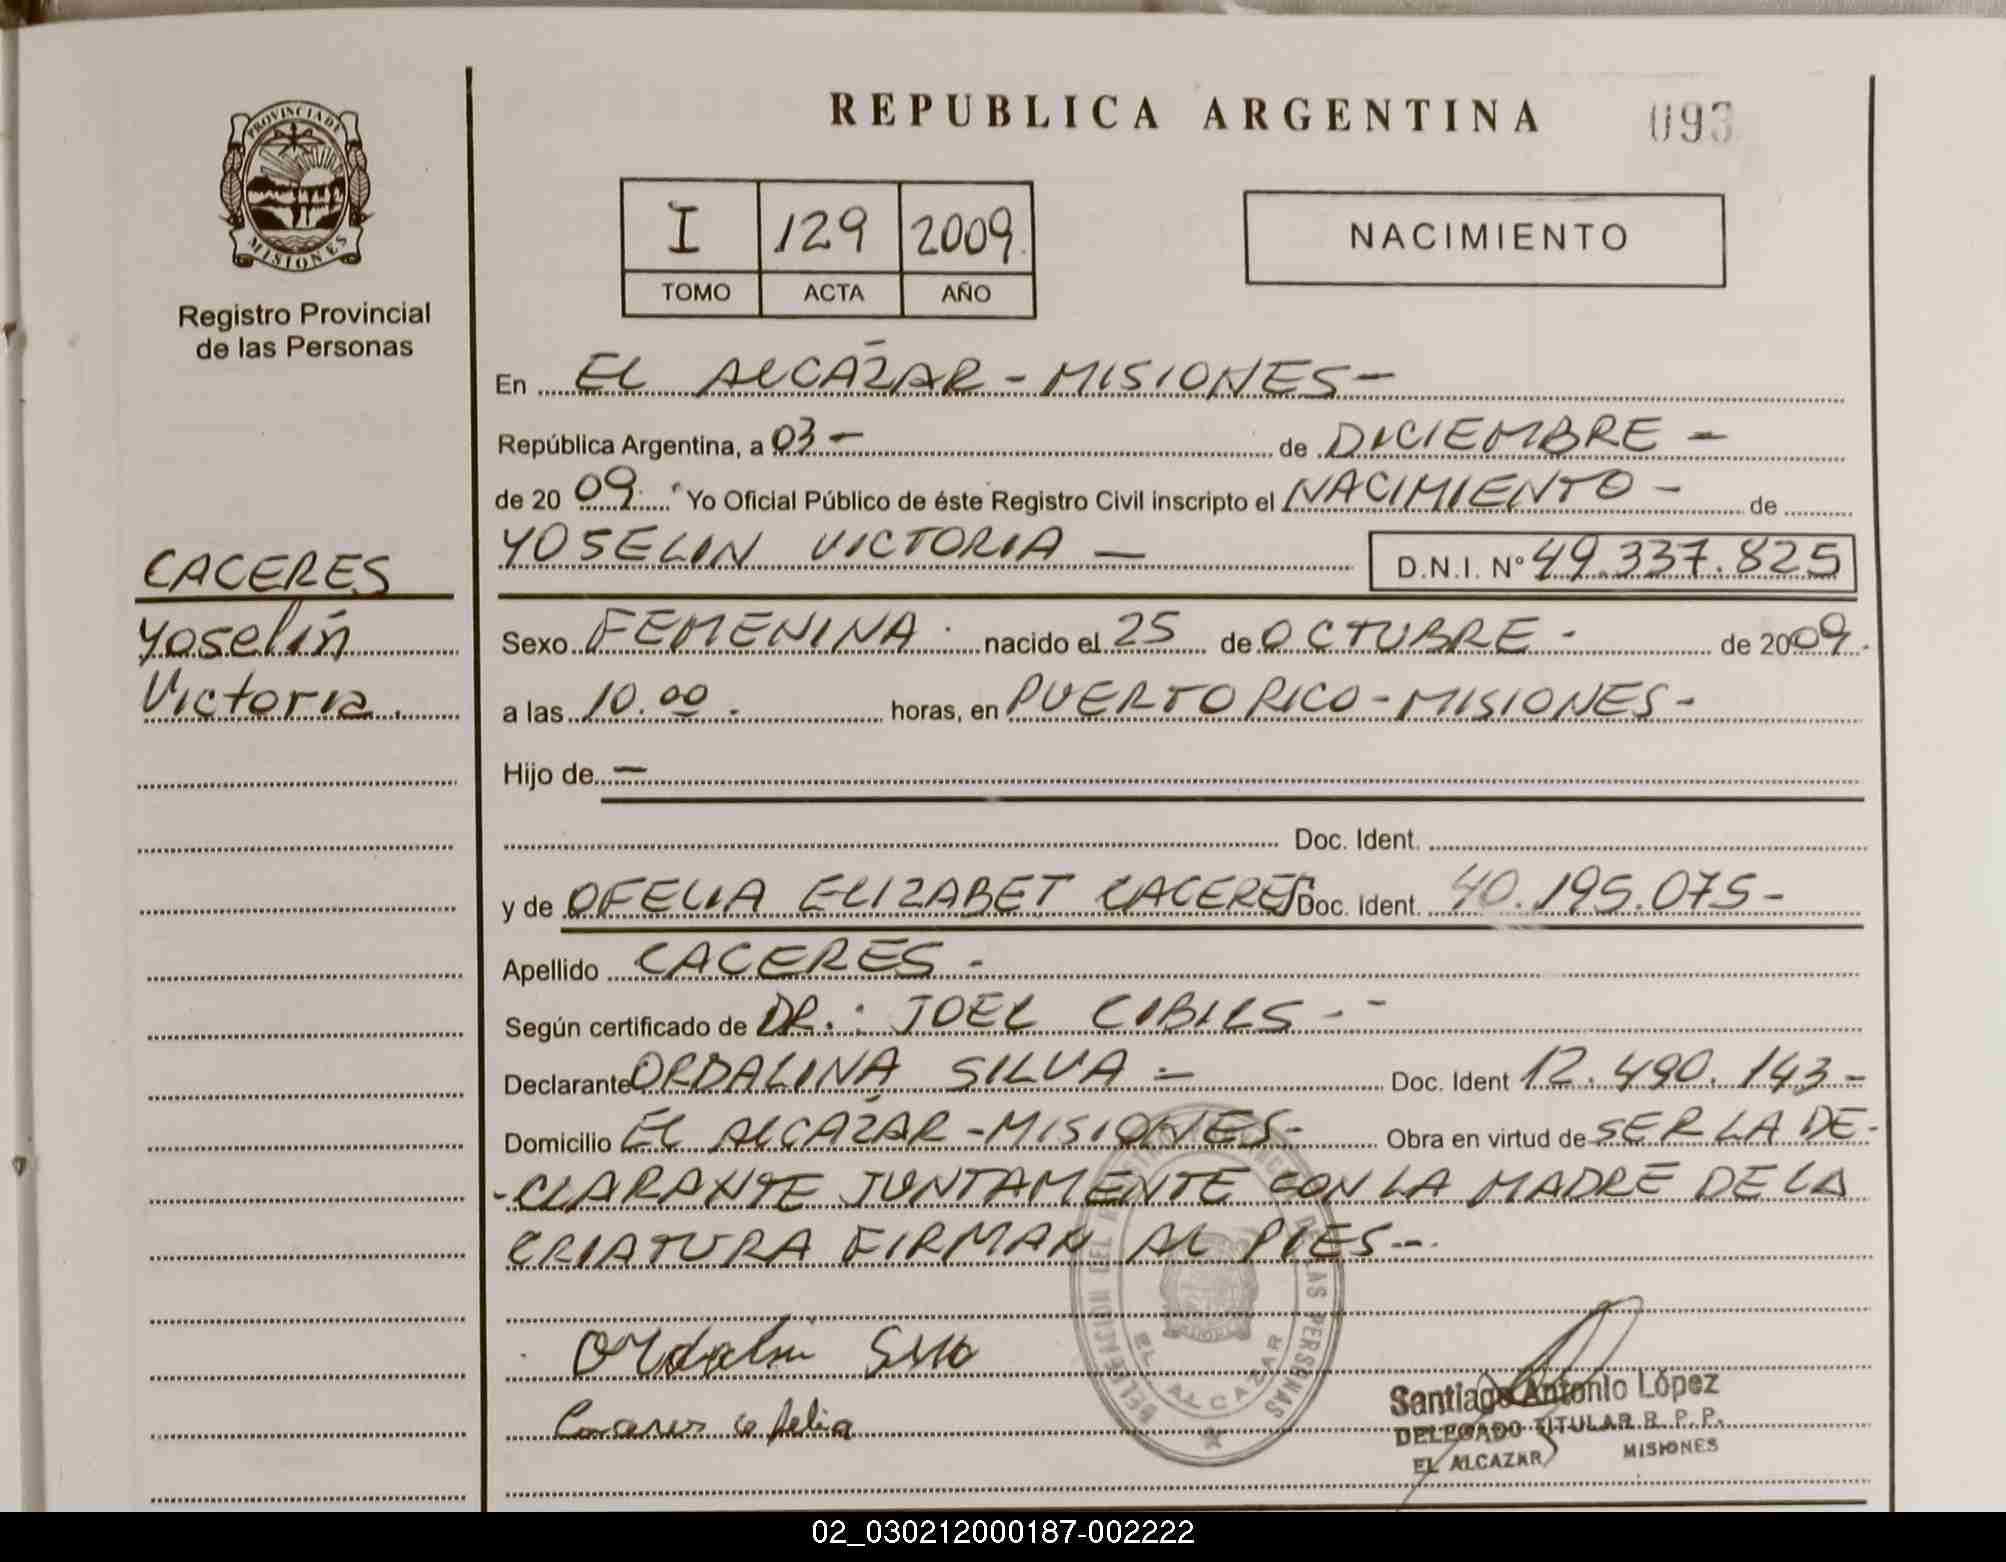 REPUBLICA ARGENTINA 093
PROVINCIA DE
MISIONES
Registro Provincial
de las Personas
I 129 2009.
TOMO ACTA AÑO
NACIMIENTO
En EL ALCÁZAR - MISIONES -
República Argentina, a 03 - de DICIEMBRE -
de 20 09. Yo Oficial Público de éste Registro Civil inscripto el NACIMIENTO - de
YOSELIN VICTORIA - D.N.I. N° 49.337.825
CACERES
Yoselin
Victoria.
Sexo FEMENINA. nacido el 25 de OCTUBRE - de 2009.
a las 10.00. horas, en PUERTO RICO - MISIONES -
Hijo de -
Doc. Ident.
y de OFELIA ELIZABET CACERES Doc. Ident. 40.195.075 -
Apellido CACERES -
Según certificado de DR.: JOEL CIBILS - -
Declarante ORDALINA SILVA = Doc. Ident 12.490.143 -
Domicilio EL ALCÁZAR - MISIONES - Obra en virtud de SER LA DE-
-CLARANTE JUNTAMENTE CON LA MADRE DE LA
CRIATURA FIRMAN AL PIES -.
DELEGACION DEL DE LAS PERSONAS
EL ALCAZAR
Santiago Antonio López
DELEGADO TITULAR R. P. P.
EL ALCAZAR MISIONES
02_030212000187-002222